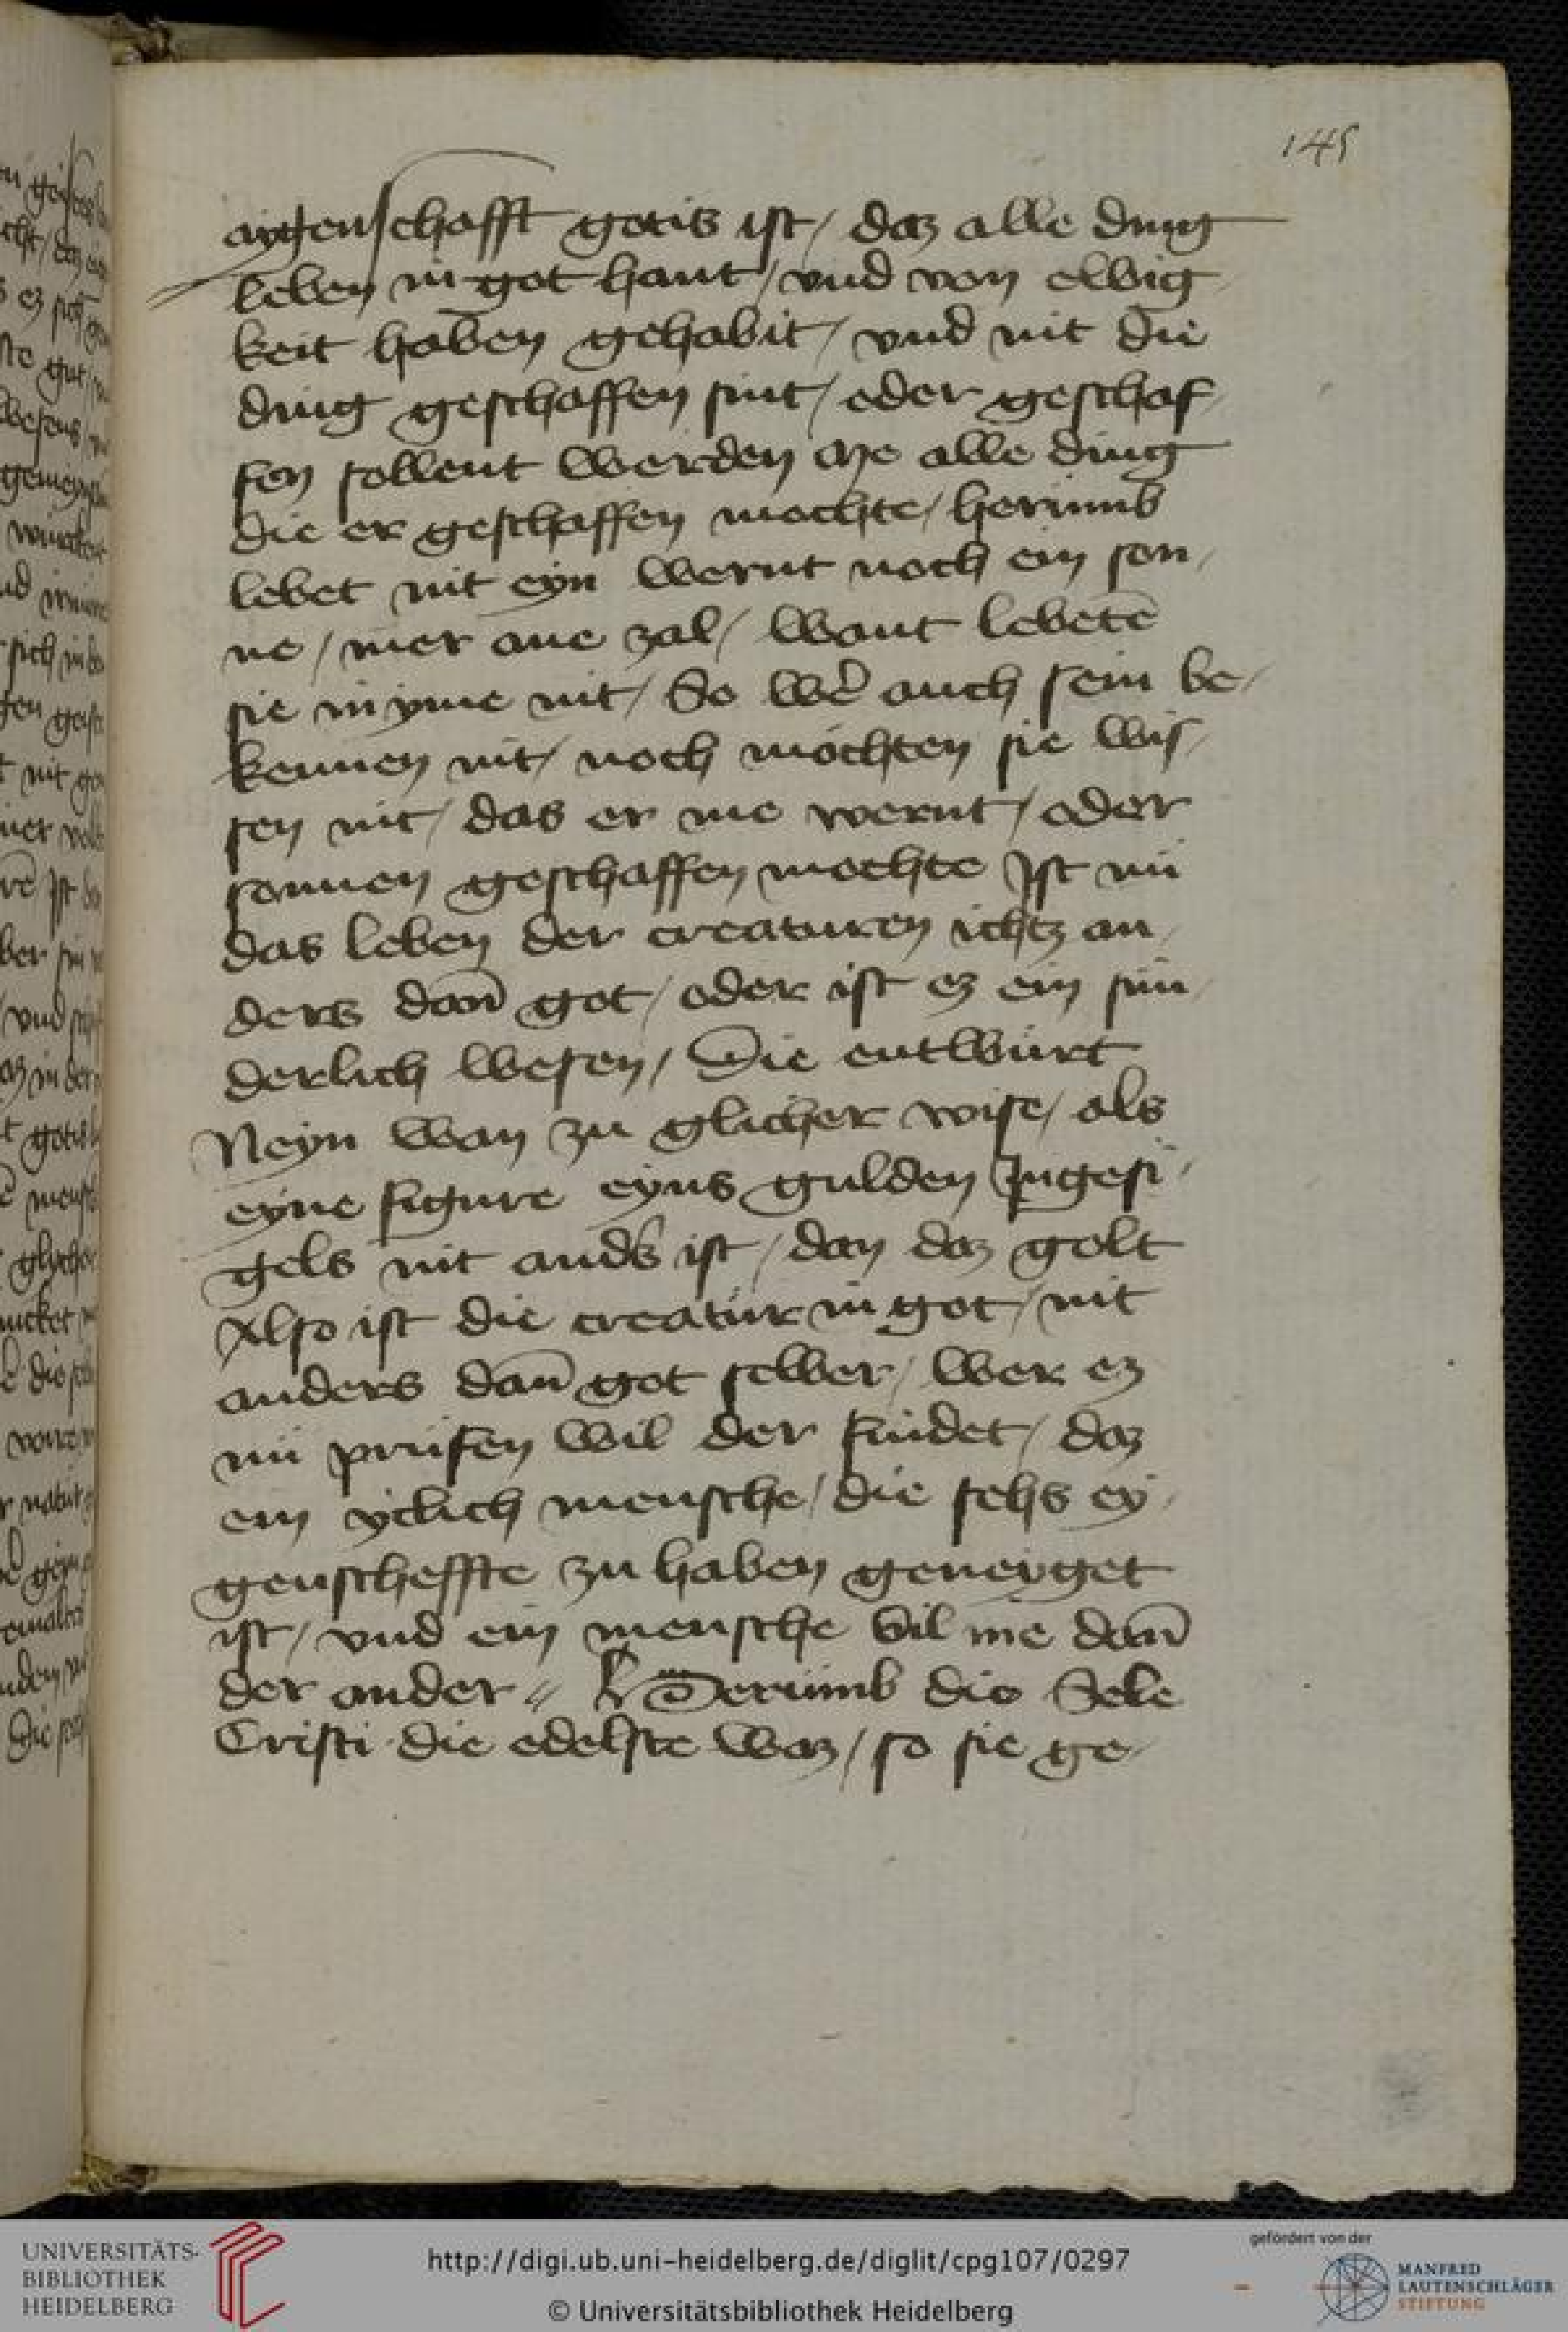 145
aygenschafft gotis ist / daz alle ding
leben in got hant / vnd von ewig
keit haben gehabit / vnd nit die
ding geschaffen sint / oder geschaf
fen sollent werden me alle ding
die er geschaffen mochte / herumb
lebet nit eyn wernt noch ein son
ne / mer ane zal / want lebetē
sie in yme nit / So wer̄ auch sein be
kennen nit / noch mochten sie wis
sen nit / das er me wernt / oder
sonnen geschaffen mochte Ist nü
das leben der creaturen ichtz an
ders dañ got / oder ist ez ein sün
derlich wesen / Die entwürt
Neyn wan zu glicher wise / als
eyne figure eyns gulden Jngesi
gels nit anders ist / dan daz golt
Also ist die creatür in got / nit
anders dañ got selber / wer ez
nü prüfen wil der findet / daz
ein yclich mensche / die sehs ey
genscheffte zu haben geneyget
ist / vnd ein mensche vil me dañ
der ander // Derümb die Sele
Cristi die edelste waz / so sie ge
UNIVERSITÄTS-
BIBLIOTHEK
HEIDELBERG
http://digi.ub.uni-heidelberg.de/diglit/cpg107/0297
© Universitätsbibliothek Heidelberg
gefördert von der
MANFRED
LAUTENSCHLÄGER
STIFTUNG